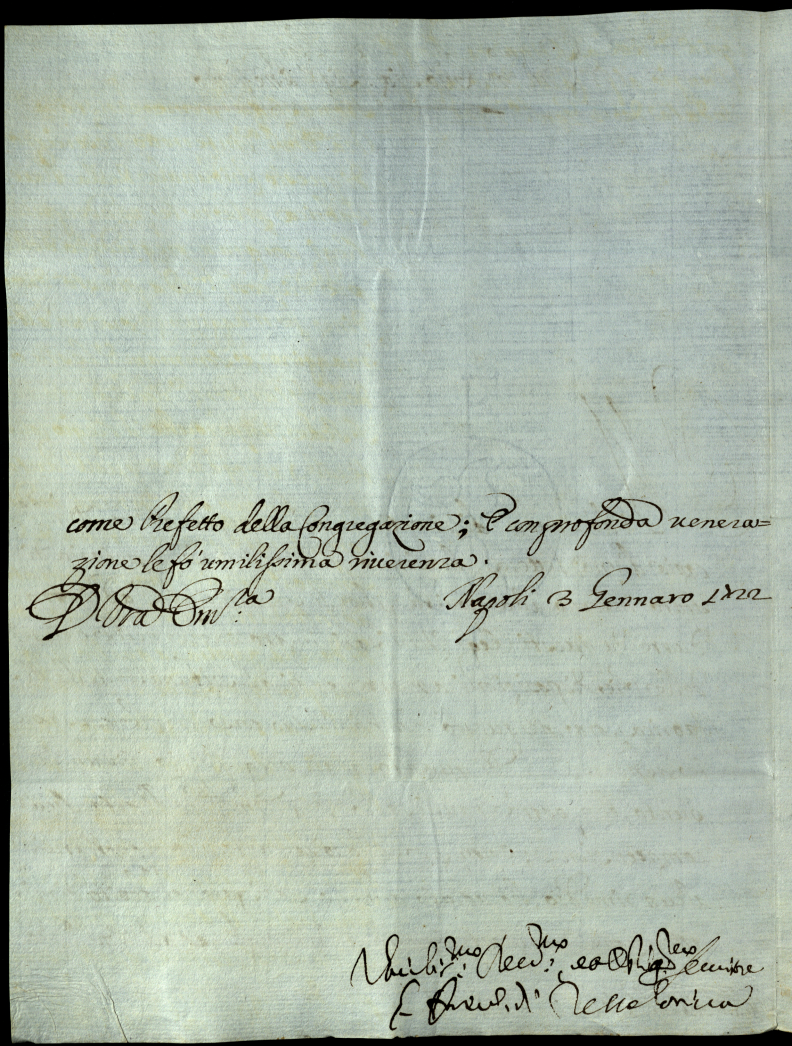 come Prefetto della Congregazione; E con profonda venera=
zione le fò umilissima riverenza.
Di Vra Em:za Napoli 3 Gennaro 1722
Umilis:mo Dev:mo ed Oblig:mo Servitore
L' Arciv. di Tessalonica